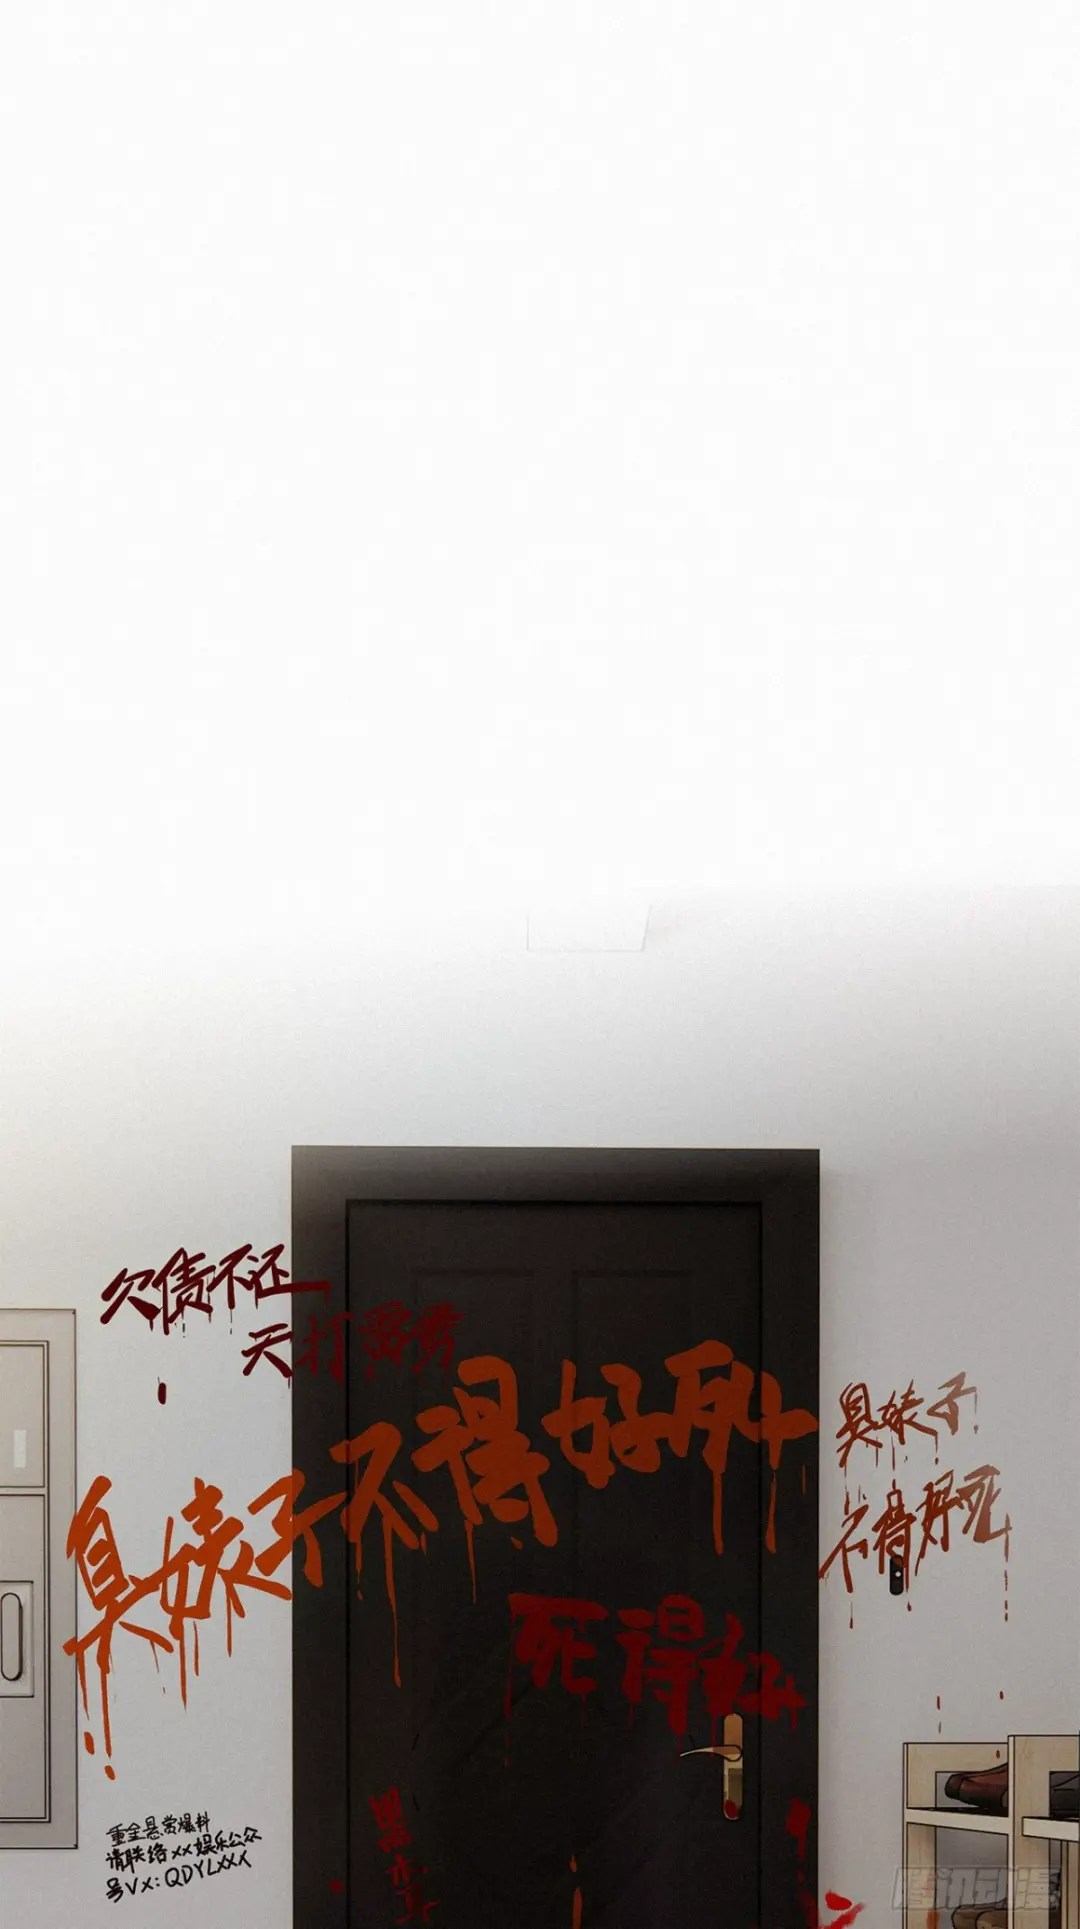 欠债不还
天打雷劈
臭婊子不得好死
臭婊子
不得好死
死得好
重金悬赏爆料
请联络xx娱乐公众
号VX:QDYLXXX
腾讯动漫